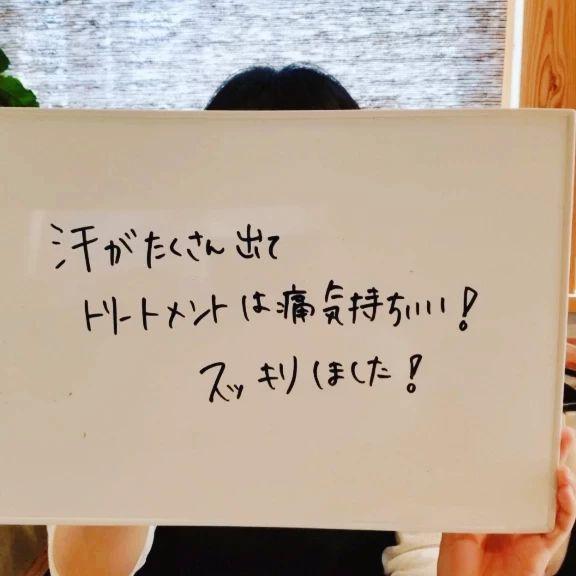 汗がたくさん出て
トリートメントは痛気持ちいい!
スッキリしました!